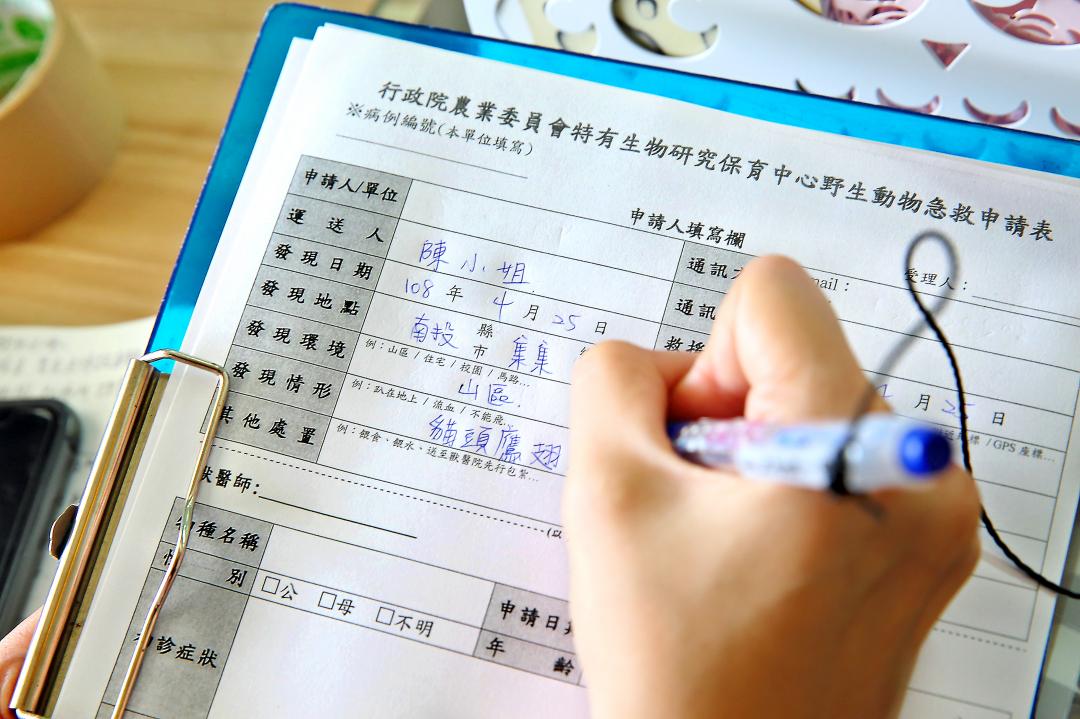 行政院農業委員會特有生物研究保育中心野生動物急救申請表
※病例編號(本單位填寫)
申請人填寫欄
受理人：
申請人/單位
通訊
mail：
運送人 陳小姐
通訊
發現日期 108年4月25日
救
月25日
發現地點 南投 縣市 集集
GPS座標…
發現環境 例：山區 / 住宅 / 校園 / 馬路…
山區.
發現情形 例：趴在地上 / 流血 / 不能飛
貓頭鷹翅
其他處置 例：餵食、餵水、送至獸醫院先行包紮…
獸醫師:
(以
物種名稱
申請日期
性別 □公 □母 □不明
年齡
初診症狀